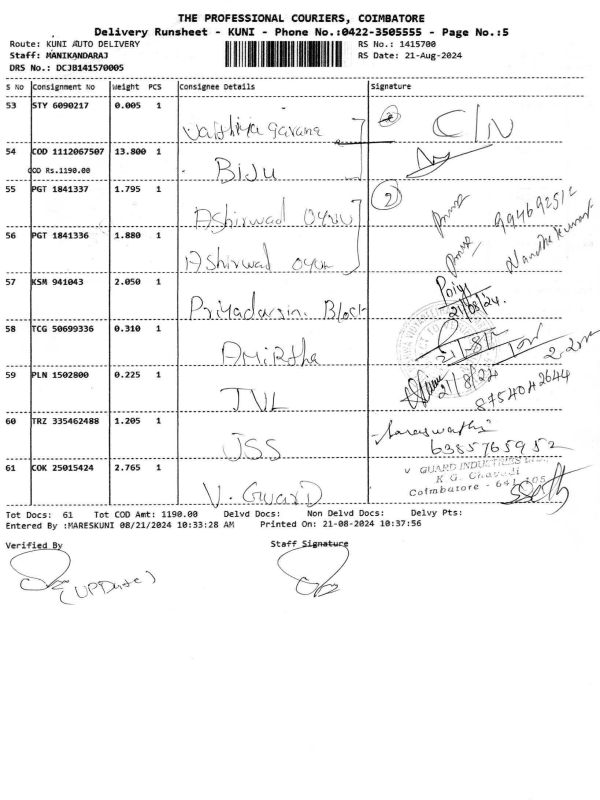 THE PROFESSIONAL COURIERS, COIMBATORE
Delivery Runsheet - KUNI - Phone No.:0422-3505555 - Page No.:5
Route: KUNI AUTO DELIVERY RS No.: 1415700
Staff: MANIKANDARAJ RS Date: 21-Aug-2024
DRS No.: DCJB141570005
S No Consignment No Weight PCS Consignee Details Signature
53 STY 6090217 0.005 1 C/N
54 COD 1112067507 13.800 1 BIJU
COD Rs.1190.00
55 PGT 1841337 1.795 1 Ashirwad 2
56 PGT 1841336 1.880 1 Ashirwad
57 KSM 941043 2.050 1 Block Priya
21/08/24.
58 TCG 50699336 0.310 1 Amirtha
59 PLN 1502800 0.225 1 JVL 21/8/24
8754042644
60 TRZ 335462488 1.205 1 JSS
6385765952
61 COK 25015424 2.765 1 V. Guard V GUARD INDUSTRIES
K G. Chavadi
Coimbatore - 641 105
Tot Docs: 61 Tot COD Amt: 1190.00 Delvd Docs: Non Delvd Docs: Delvy Pts:
Entered By :MARESKUNI 08/21/2024 10:33:28 AM Printed On: 21-08-2024 10:37:56
Verified By Staff Signature
(UPDate)